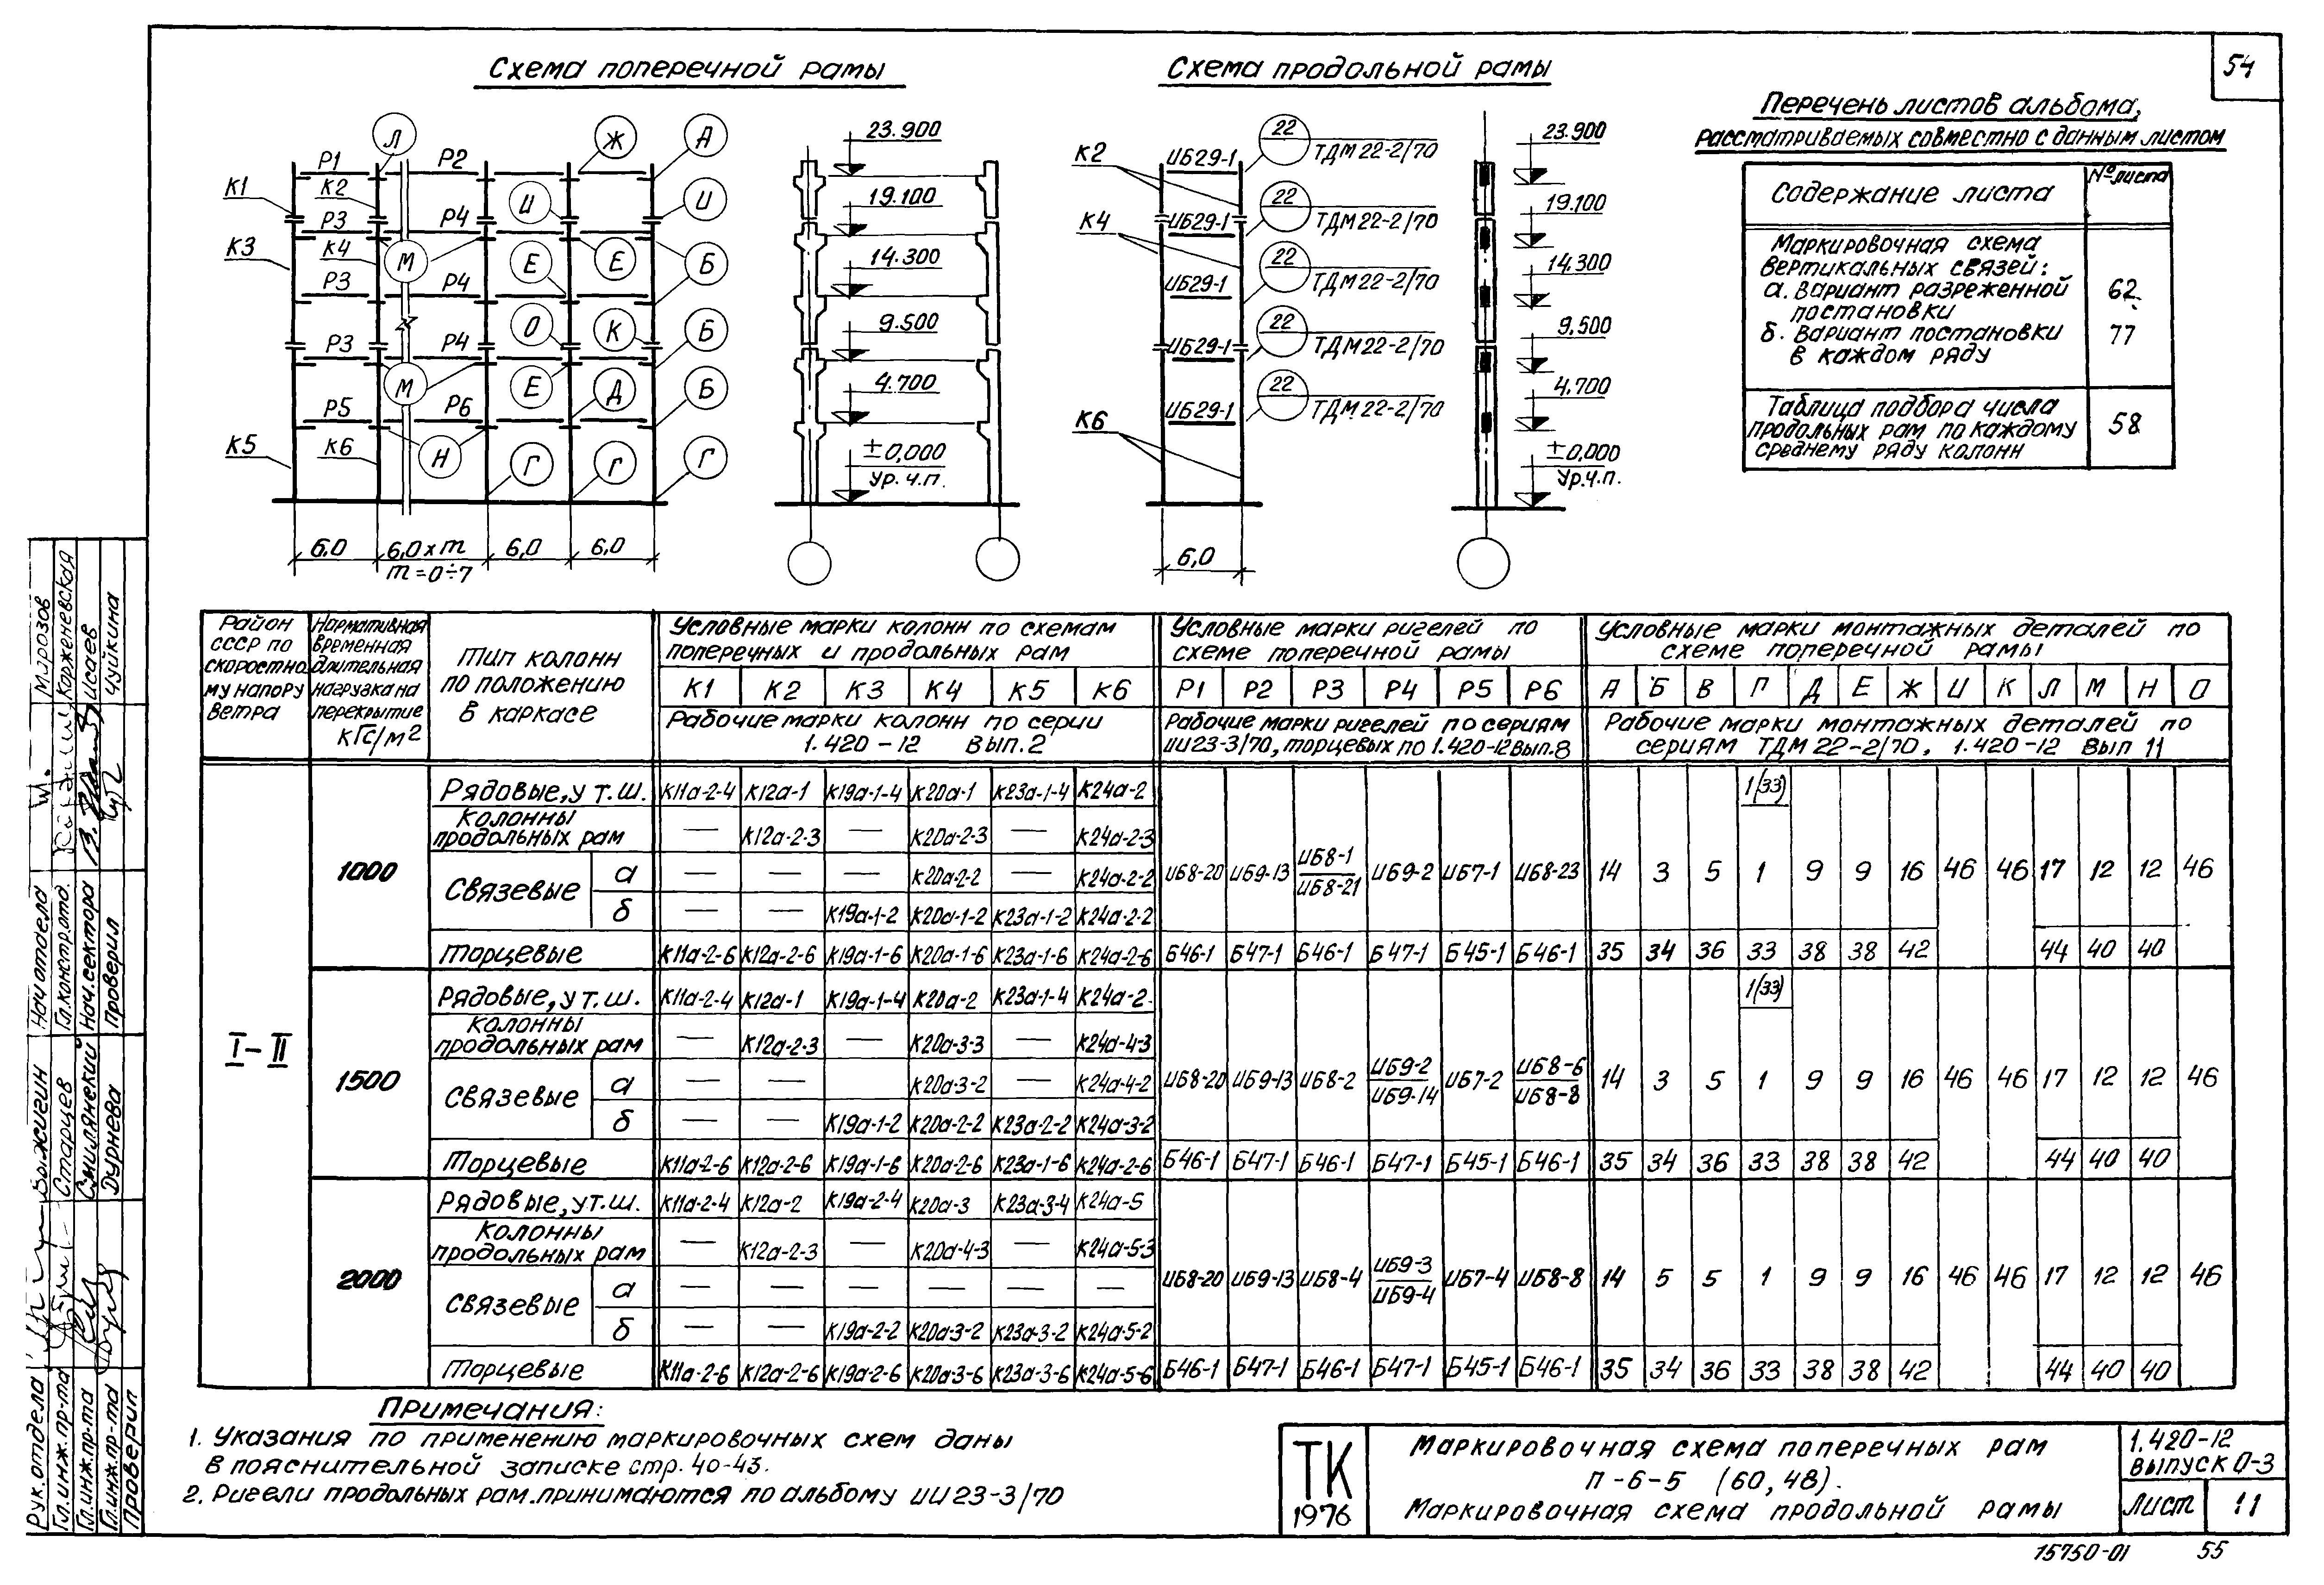 54
Схема поперечной рамы
Схема продольной рамы
Перечень листов альбома,
рассматриваемых совместно с данным листом
Содержание листа
№ листа
Маркировочная схема
вертикальных связей:
а. Вариант разреженной
постановки
62
б. Вариант постановки
в каждом ряду
77
Таблица подбора числа
продольных рам по каждому
среднему ряду колонн
58
Л Ж А
Р1 Р2
К1 К2
И И
Р3 Р4
К3 К4
М Е Е Б
Р3 Р4
О К Б
Р3 Р4
М Е Д Б
Р5 Р6
К5 К6
Н Г Г Г
6.0 6,0 х m 6,0 6,0
m = 0÷7
23.900
19.100
14.300
9.500
4.700
±0,000
Ур.ч.п.
К2 ИБ29-1 22 ТДМ 22-2/70
К4 ИБ29-1 22 ТДМ 22-2/70
ИБ29-1 22 ТДМ 22-2/70
ИБ29-1 22 ТДМ 22-2/70
К6 ИБ29-1 22 ТДМ 22-2/70
6,0
23.900
19.100
14.300
9.500
4.700
±0,000
Ур.ч.п.
Район СССР по скоростному напору ветра
Нормативная временная длительная нагрузка на перекрытие кГс/м2
Тип колонн по положению в каркасе
Условные марки колонн по схемам поперечных и продольных рам
Условные марки ригелей по схеме поперечной рамы
Условные марки монтажных деталей по схеме поперечной рамы
К1 К2 К3 К4 К5 К6 Р1 Р2 Р3 Р4 Р5 Р6 А Б В Г Д Е Ж И К Л М Н О
Рабочие марки колонн по серии 1.420-12 Вып.2
Рабочие марки ригелей по сериям ИИ23-3/70, торцевых по 1.420-12 Вып.8
Рабочие марки монтажных деталей по сериям ТДМ 22-2/70, 1.420-12 Вып 11
I-II
1000
Рядовые, у т.ш. К11а-2-4 К12а-1 К19а-1-4 К20а-1 К23а-1-4 К24а-2 1(33)
Колонны продольных рам — К12а-2-3 — К20а-2-3 — К24а-2-3
Связевые а — — — К20а-2-2 — К24а-2-2
ИБ8-20 ИБ9-13 ИБ8-1 / ИБ8-21 ИБ9-2 ИБ7-1 ИБ8-23 14 3 5 1 9 9 16 46 46 17 12 12 46
б — — К19а-1-2 К20а-1-2 К23а-1-2 К24а-2-2
Торцевые К11а-2-6 К12а-2-6 К19а-1-6 К20а-1-6 К23а-1-6 К24а-2-6 Б46-1 Б47-1 Б46-1 Б47-1 Б45-1 Б46-1 35 34 36 33 38 38 42 44 40 40
1500
Рядовые, у т.ш. К11а-2-4 К12а-1 К19а-1-4 К20а-2 К23а-1-4 К24а-2 1(33)
Колонны продольных рам — К12а-2-3 — К20а-3-3 — К24а-4-3
Связевые а — — — К20а-3-2 — К24а-4-2
ИБ8-20 ИБ9-13 ИБ8-2 ИБ9-2 / ИБ9-14 ИБ7-2 ИБ8-6 / ИБ8-8 14 3 5 1 9 9 16 46 46 17 12 12 46
б — — К19а-1-2 К20а-2-2 К23а-2-2 К24а-3-2
Торцевые К11а-2-6 К12а-2-6 К19а-1-6 К20а-2-6 К23а-1-6 К24а-2-6 Б46-1 Б47-1 Б46-1 Б47-1 Б45-1 Б46-1 35 34 36 33 38 38 42 44 40 40
2000
Рядовые, у т.ш. К11а-2-4 К12а-2 К19а-2-4 К20а-3 К23а-3-4 К24а-5
Колонны продольных рам — К12а-2-3 — К20а-4-3 — К24а-5-3
Связевые а — — — — — —
ИБ8-20 ИБ9-13 ИБ8-4 ИБ9-3 / ИБ9-4 ИБ7-4 ИБ8-8 14 5 5 1 9 9 16 46 46 17 12 12 46
б — — К19а-2-2 К20а-3-2 К23а-3-2 К24а-5-2
Торцевые К11а-2-6 К12а-2-6 К19а-2-6 К20а-3-6 К23а-3-6 К24а-5-6 Б46-1 Б47-1 Б46-1 Б47-1 Б45-1 Б46-1 35 34 36 33 38 38 42 44 40 40
Примечания:
1. Указания по применению маркировочных схем даны
в пояснительной записке стр. 40-43.
2. Ригели продольных рам принимаются по альбому ИИ 23-3/70
ТК
1976
Маркировочная схема поперечных рам
П-6-5 (60, 48).
Маркировочная схема продольной рамы
1.420-12
выпуск 0-3
Лист 11
15750-01 55
Рук. отдела Выжигин Нач отдела Морозов
Гл. инж. пр-та Старцев Гл. констр. отд. Корженевская
Гл. инж. пр-та Смилянский Нач. сектора Исаев
Гл. инж. пр-та Дурнева Проверил Чуйкина
Проверил